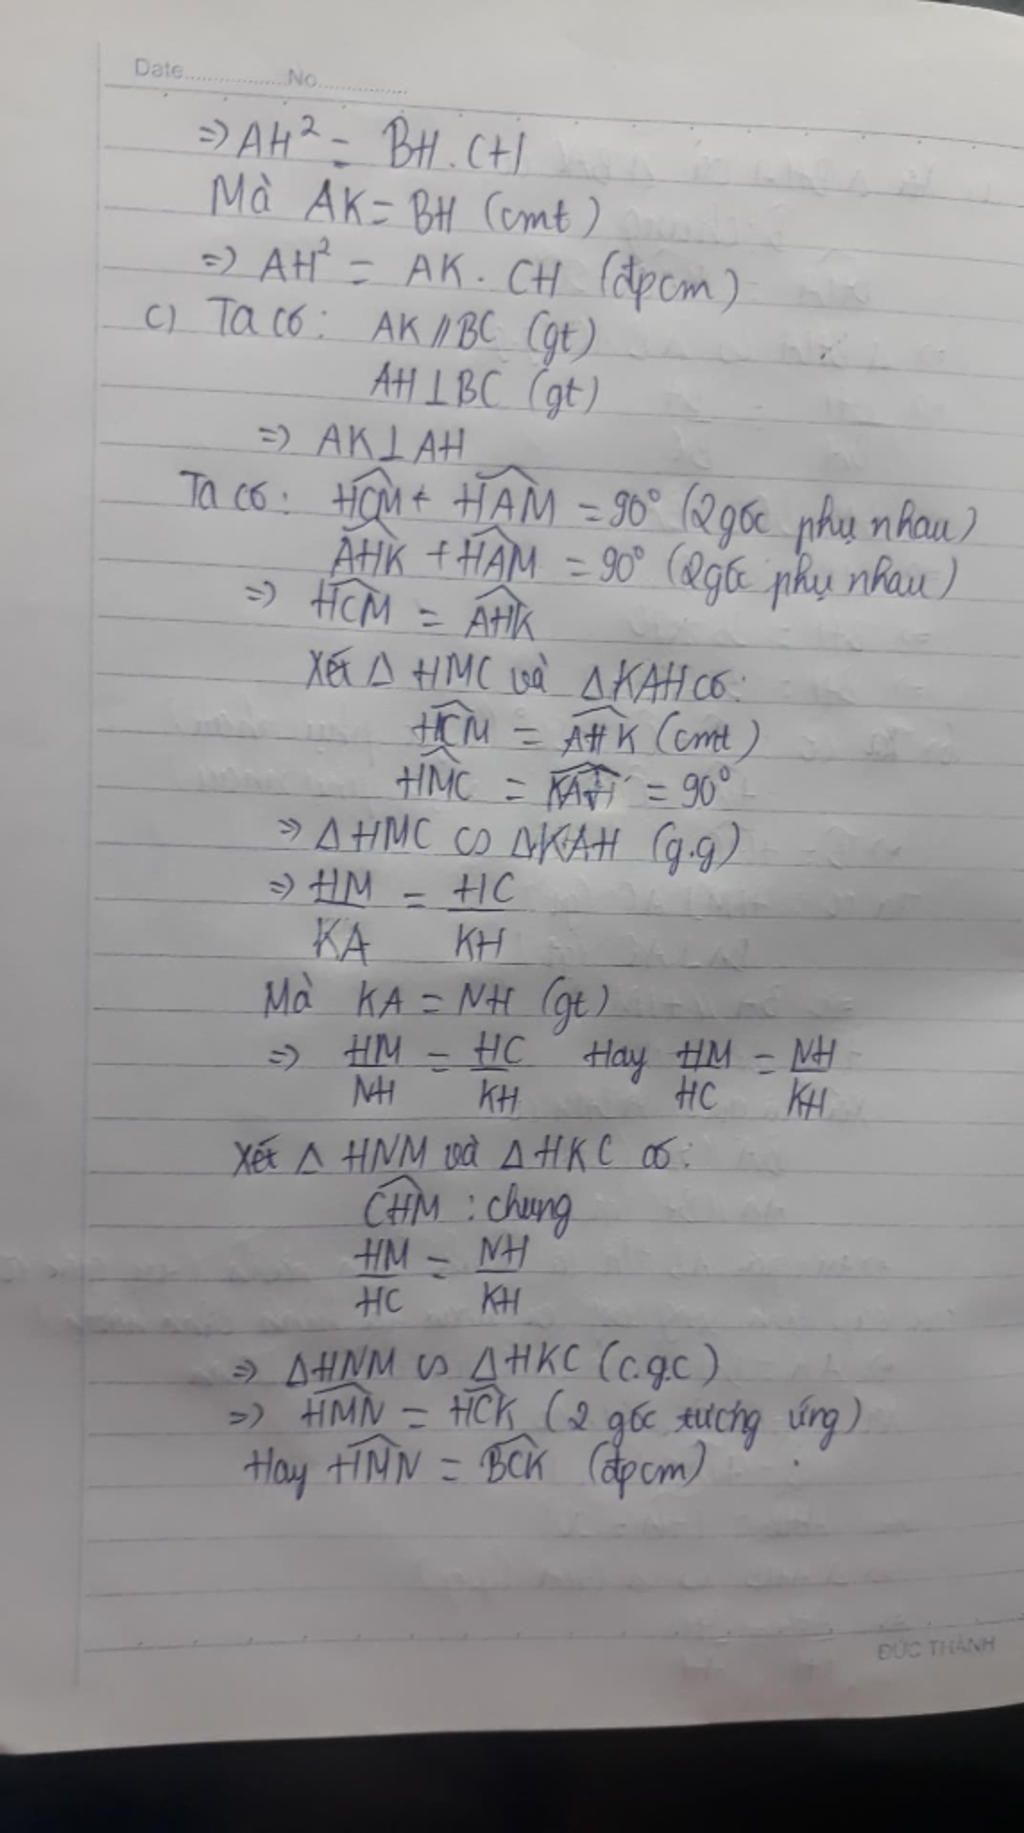 Date..................No..................
=> AH² = BH . CH
Mà AK = BH (cmt)
=> AH² = AK . CH (đpcm)
c) Ta có: AK // BC (gt)
AH ⊥ BC (gt)
=> AK ⊥ AH
Ta có: HCM + HAM = 90° (2 góc phụ nhau)
AHK + HAM = 90° (2 góc phụ nhau)
=> HCM = AHK
Xét Δ HMC và ΔKAH có:
HCM = AHK (cmt)
HMC = KAH = 90°
=> Δ HMC ∽ ΔKAH (g.g)
=> HM/KA = HC/KH
Mà KA = NH (gt)
=> HM/NH = HC/KH Hay HM/HC = NH/KH
Xét Δ HNM và Δ HKC có:
CHM : chung
HM/HC = NH/KH
=> ΔHNM ∽ ΔHKC (c.g.c)
=> HMN = HCK (2 góc tương ứng)
Hay HMN = BCK (đpcm)
ĐỨC THÀNH